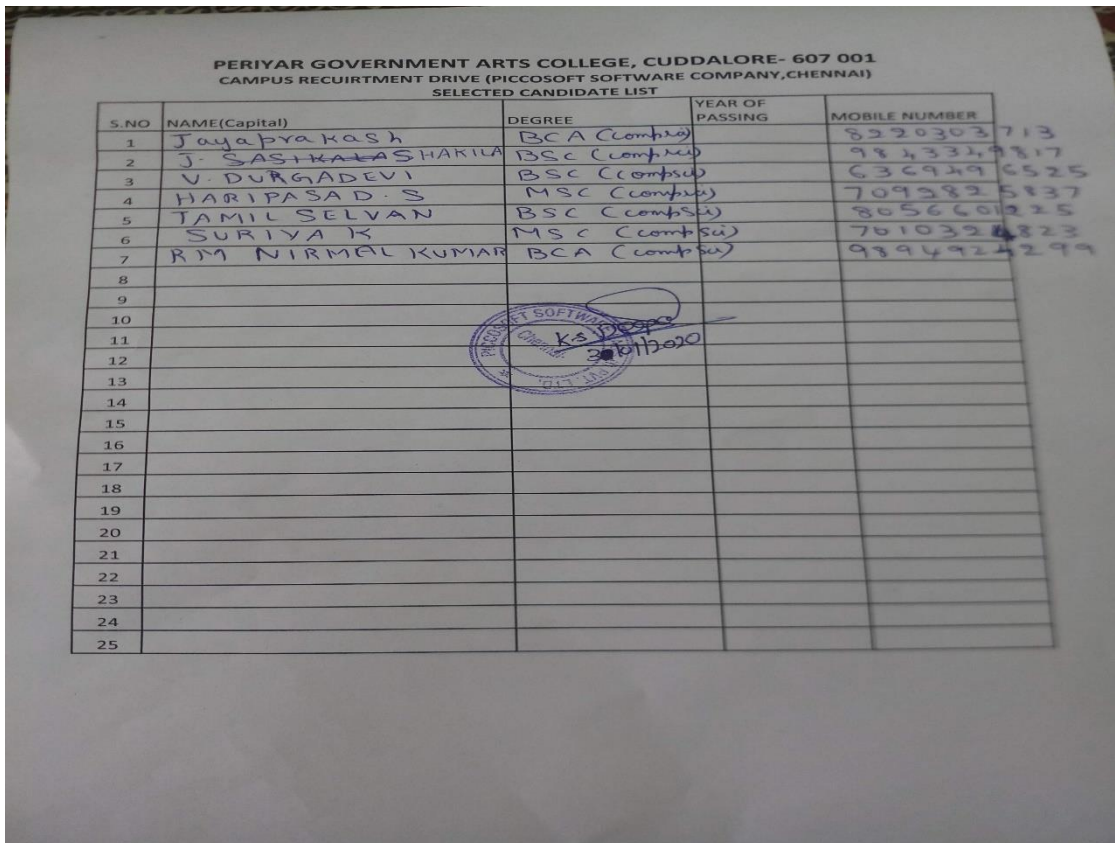 PERIYAR GOVERNMENT ARTS COLLEGE, CUDDALORE- 607 001
CAMPUS RECUIRTMENT DRIVE (PICCOSOFT SOFTWARE COMPANY,CHENNAI)
SELECTED CANDIDATE LIST
S.NO NAME(Capital) DEGREE YEAR OF PASSING MOBILE NUMBER
1 Jayaprakash BCA (compsci) 8220303713
2 J. SASIKALA SHAKILA BSC (compsci) 9843349817
3 V. DURGADEVI BSC (compsci) 6369496525
4 HARIPASAD. S MSC (compsci) 7092825837
5 TAMIL SELVAN BSC (compsci) 8056601225
6 SURIYA K MSC (compsci) 7010324823
7 RM NIRMAL KUMAR BCA (compsci) 9894924299
8
9
10
11
12
13
14
15
16
17
18
19
20
21
22
23
24
25
PICCOSOFT SOFTWARE PVT. LTD.
Chennai.
K.S
30/01/2020